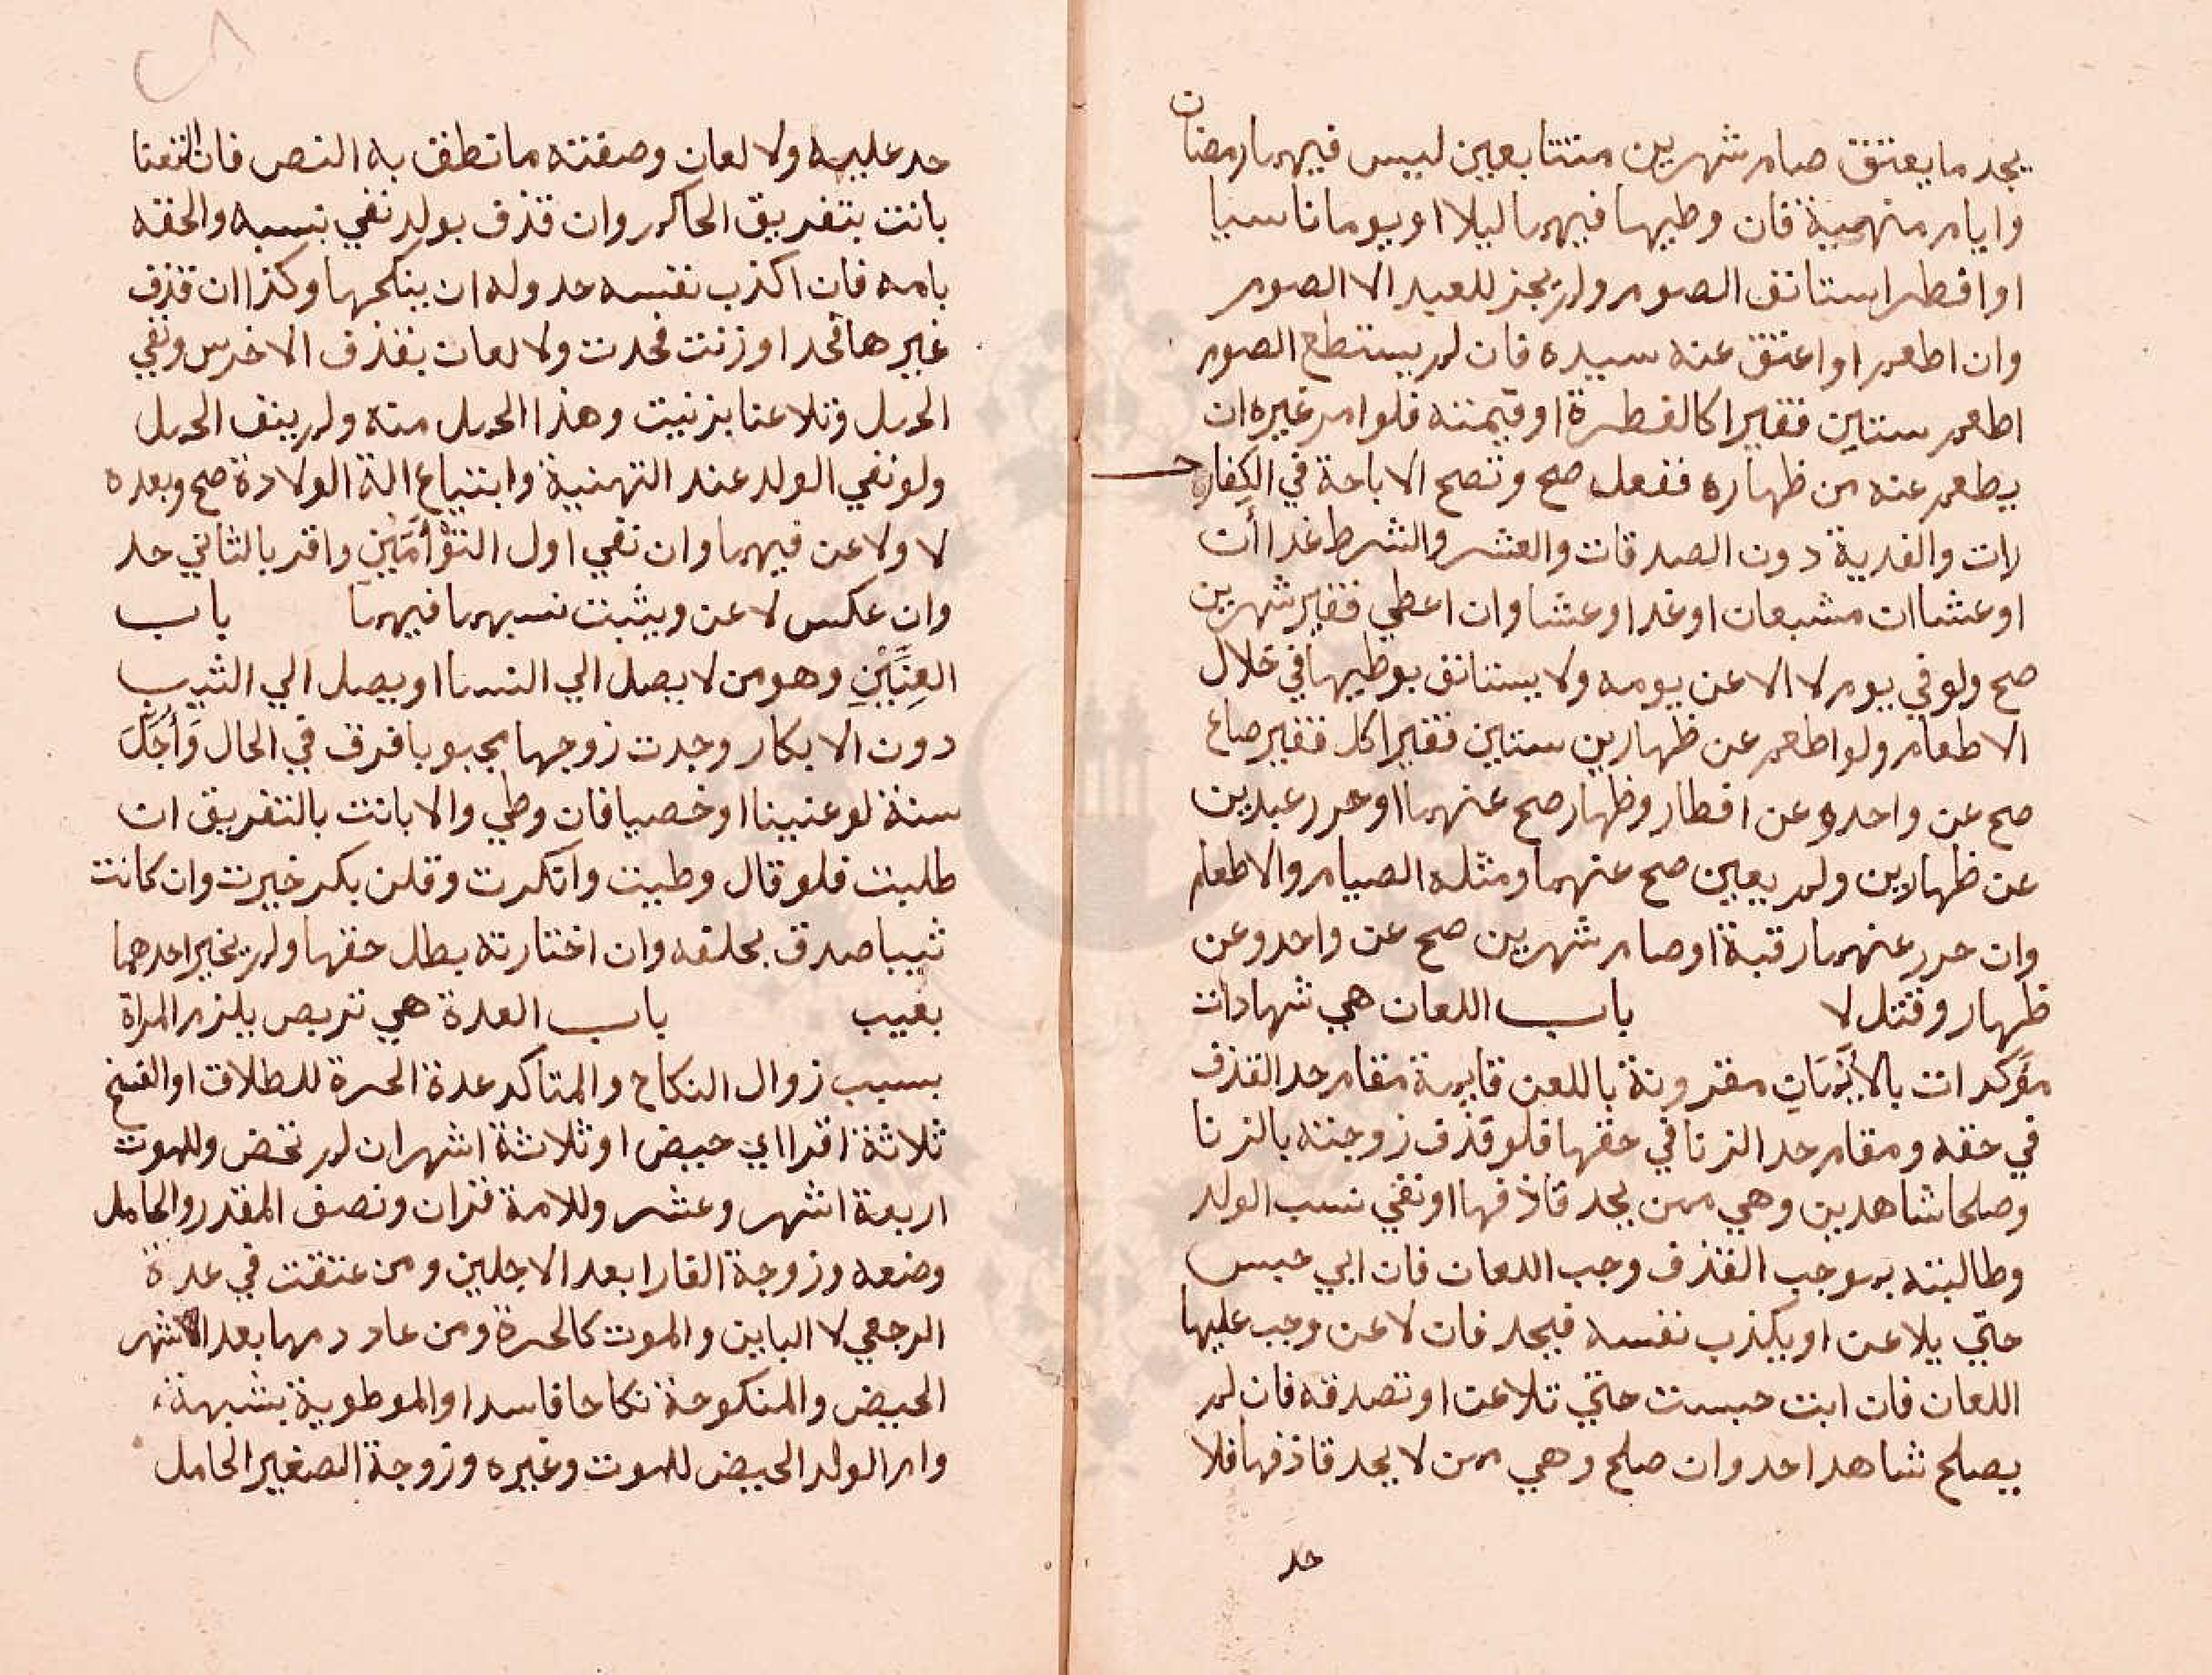 يجد ما يعتق صام شهرين متتابعين ليس فيهما رمضان
وايام منهية فان وطيها فيهما ليلا او يوما ناسيا
او افطر استانف الصوم ولم يجز للعبد الا الصوم
وان اطعم او اعتق عنه سيده فان لم يستطع الصوم
اطعم ستين فقيرا كالفطرة او قيمته فلو امر غيره ان
يطعم عنه من ظهاره ففعل صح وتصح الاباحة في الكفار
رات والفدية دون الصدقات والعشر والشرط غداات
او عشاات مشبعان او غدا وعشا وان اعطي فقير شهرين
صح ولو في يوم لا الا عن يومه ولا يستانف بوطيها في خلال
الاطعام ولو اطعم عن ظهارين ستين فقيرا كل فقير صاع
صح عن واحد وعن افطار وظهار صح عنهما او حرر عبدين
عن ظهارين ولم يعين صح عنهما ومثله الصيام والاطعام
وان حرر عنهما رقبة او صام شهرين صح عن واحد وعن
ظهار وقتل لا باب اللعان هي شهادات
مؤكدات بالأيمان مقرونة باللعن قايمة مقام حد القذف
في حقه ومقام حد الزنا في حقها فلو قذف زوجته بالزنا
وصلحا شاهدين وهي ممن يحد قاذفها او نفي نسب الولد
وطالبته بموجب القذف وجب اللعان فان ابي حبس
حتي يلاعن او يكذب نفسه فيحد فان لاعن وجب عليها
اللعان فان ابت حبست حتي تلاعن او تصدقه فان لم
يصلح شاهدا حد وان صلح وهي ممن لا يحد قاذفها فلا
حد
حد عليه ولا لعان وصفته ما نطق به النص فان التعنا
بانت بتفريق الحاكم وان قذف بولد نفي نسبه والحقه
بامه فان اكذب نفسه حد وله ان ينكحها وكذا ان قذف
غيرها فحد او زنت فحدت ولا لعان بقذف الاخرس ونفي
الحمل وتلاعنا بزنيت وهذا الحمل منه ولم ينف الحمل
ولو نفي الولد عند التهنية وابتياع الة الولادة صح وبعده
لا ولاعن فيهما وان نفي اول التوأمين واقر بالثاني حد
وان عكس لاعن ويثبت نسبهما فيهما باب
العنين وهو من لا يصل الي النسا او يصل الي الثيب
دون الابكار وجدت زوجها مجبوبا فرق في الحال وأجل
سنة لو عنينا او خصيا فان وطي والا بانت بالتفريق ان
طلبت فلو قال وطيت وانكرت وقلن بكر خيرت وان كانت
ثيبا صدق بحلفه وان اختارته بطل حقها ولم يخير احدهما
بعيب باب العدة هي تربص يلزم المراة
بسبب زوال النكاح والمتاكد عدة الحرة للطلاق او الفسخ
ثلاثة اقرا اي حيض او ثلاثة اشهر ان لم تحض وللموت
اربعة اشهر وعشر وللامة قران ونصف المقدر والحامل
وضعه وزوجة الفار ابعد الاجلين ومن عتقت في عدة
الرجعي لا الباين والموت كالحرة ومن عاد دمها بعد الاشهر
الحيض والمنكوحة نكاحا فاسدا والموطوية بشبهة
وام الولد الحيض للموت وغيره وزوجة الصغير الحامل